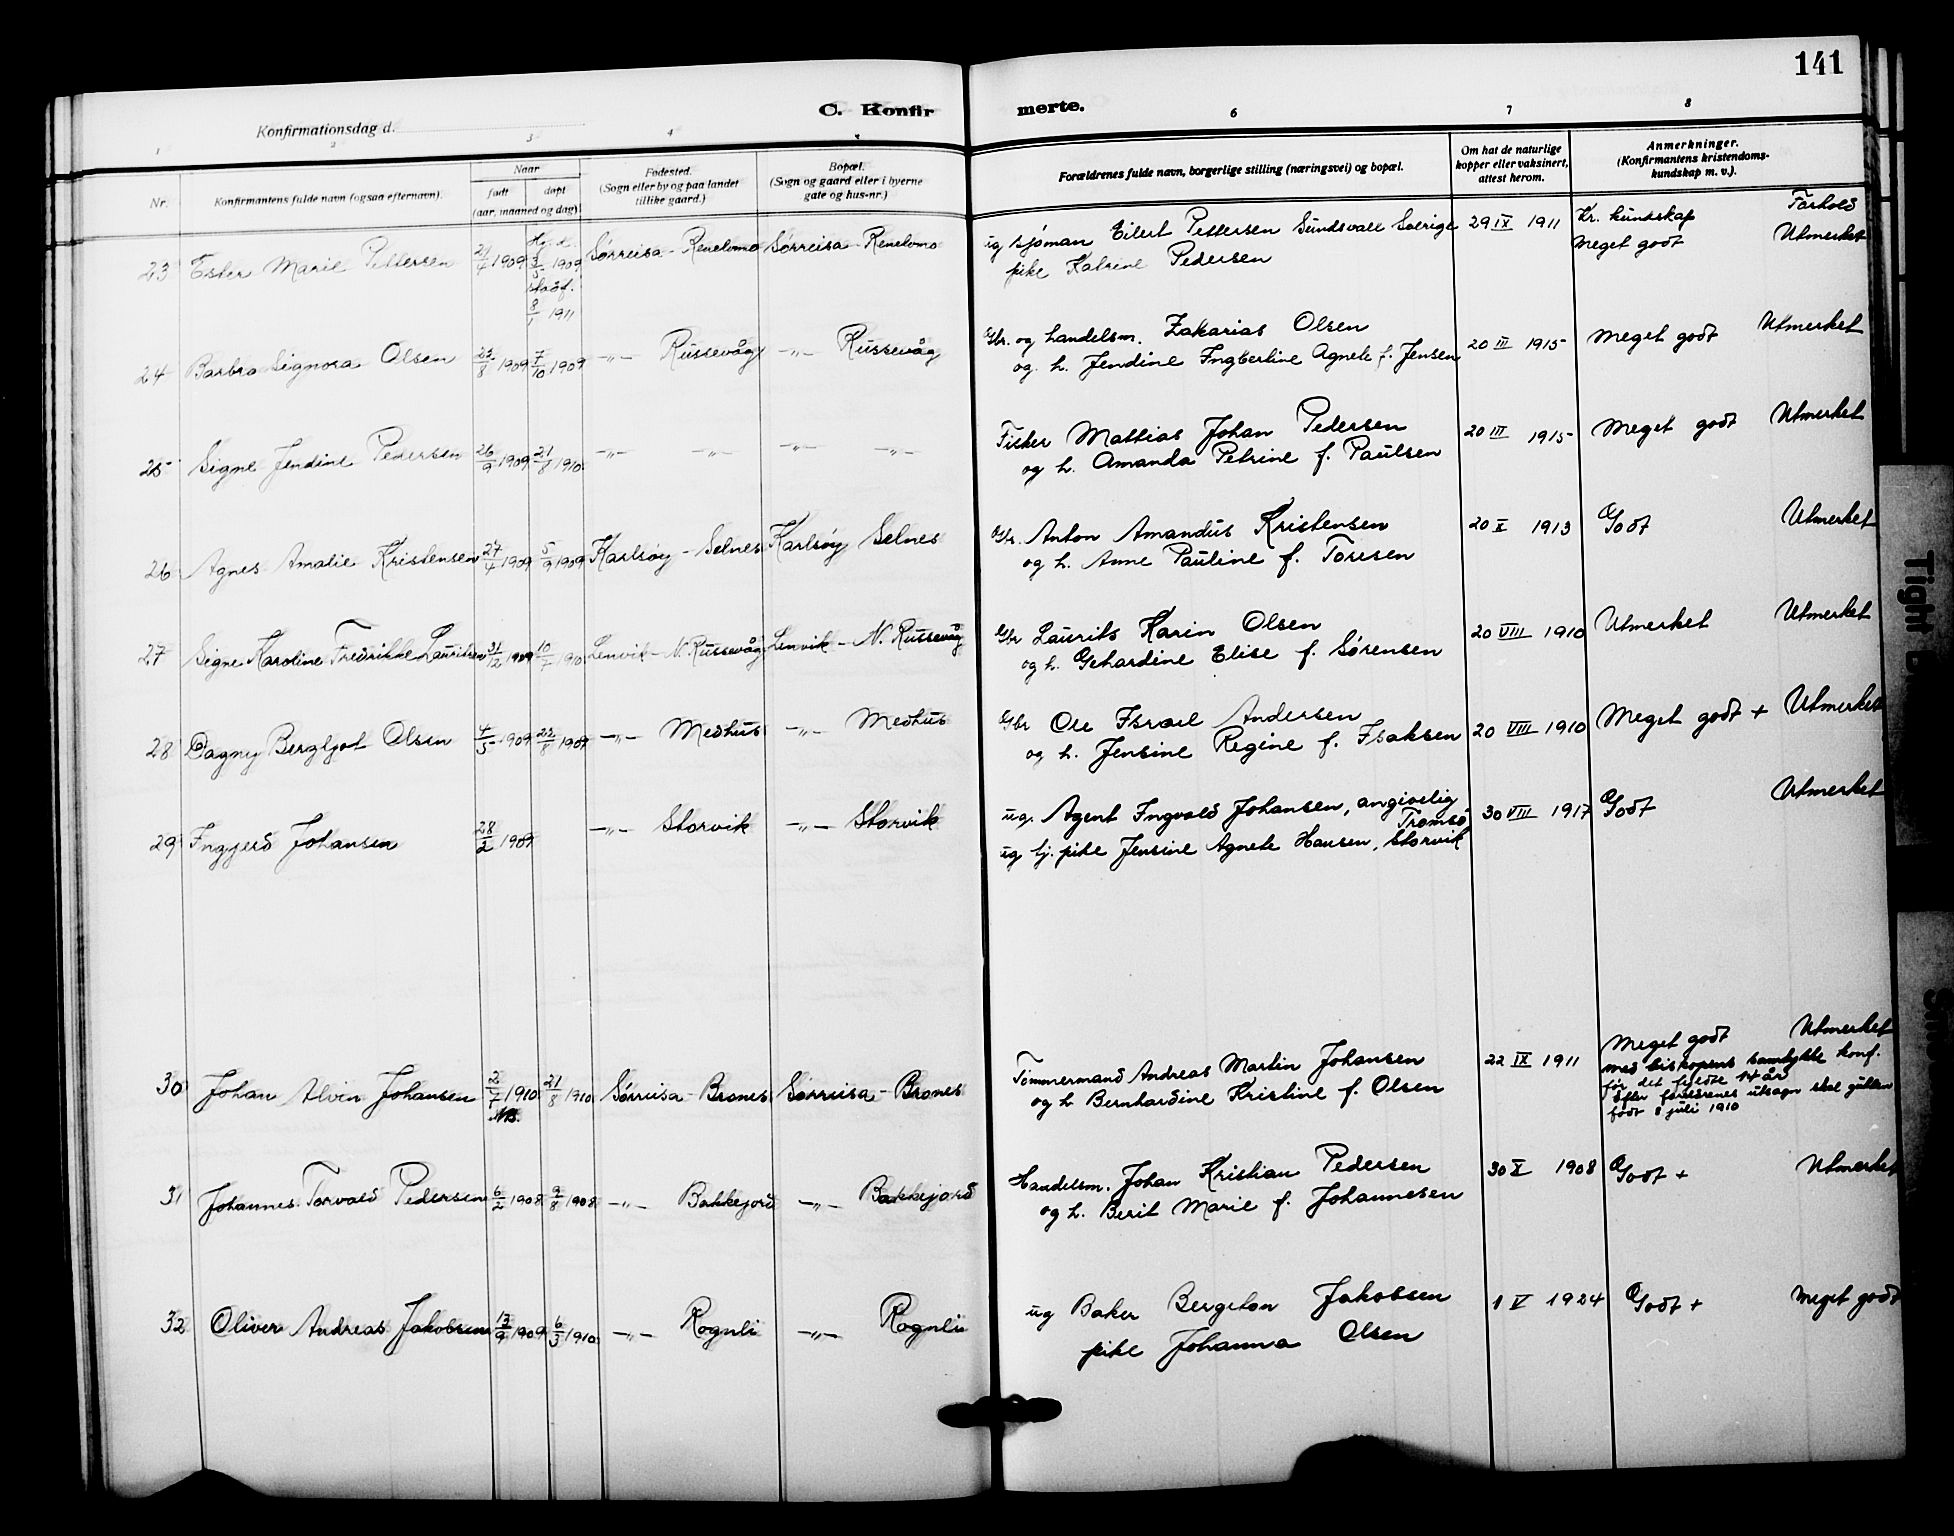 141
C. Konfirmerte.
Konfirmationsdag d.
1 2 3 4 6 7 8
Nr. Konfirmantens fulde navn (ogsaa efternavn). Naar født døpt (aar, maaned og dag) Fødested. (Sogn eller by og paa landet tillike gaard.) Bopæl. (Sogn og gaard eller i byerne gate og hus-nr.) Forældrenes fulde navn, borgerlige stilling (næringsvei) og bopæl. Om hat de naturlige kopper eller vaksinert, attest herom. Anmerkninger. (Konfirmantens kristendomskundskap m. v.).
Kr. kundskap Forhold
23 Ester Marie Pettersen 21/4 1909 Hj. d. 3/5 1909 stadf. 8/1 1911 Sørreisa - Renelvmo Sørreisa - Renelvmo ug sjøman Eilert Pettersen Sundsvall Sverige 29 IX 1911 Meget godt Utmerket
pike Katrine Pedersen
24 Barbro Signora Olsen 23/8 1909 7/10 1909 -"- Russevåg -"- Russevåg Gbr. og handelsm. Zakarias Olsen 20 III 1915 Meget godt Utmerket
og h. Jendine Ingbertine Agnete f. Jensen
25 Signe Jendine Pedersen 26/9 1909 21/8 1910 -"- -"- -"- -"- Fisker Mattias Johan Pedersen 20 III 1915 Meget godt Utmerket
og h. Amanda Petrine f. Paulsen
26 Agnes Amalie Kristensen 27/4 1909 5/9 1909 Karlsøy - Selnes Karlsøy Selnes Gbr. Anton Amandus Kristensen 20 X 1913 Godt Utmerket
og h. Anne Pauline f. Toresen
27 Signe Karoline Fredrikke Lauritsen 31/12 1909 10/7 1910 Lenvik - N. Russevåg Lenvik - N. Russevåg Gbr Laurits Karin Olsen 20 VIII 1910 Utmerket Utmerket
og h. Gehardine Elise f. Sørensen
28 Dagny Bergljot Olsen 4/5 1909 22/8 1909 -"- Medhus -"- Medhus Gbr Ole Israel Andersen 20 VIII 1910 Meget godt + Utmerket
og h. Jensine Regine f. Isaksen
29 Ingjerd Johansen 28/2 1909 -"- Storvik -"- Storvik ug. Agent Ingvald Johansen, angivelig Tromsø 30 VIII 1917 Godt Utmerket
ug tj. pike Jensine Agnete Hansen, Storvik
30 Johan Alvin Johansen 2/7 1910 NB. 21/8 1910 Sørreisa - Brones Sørreisa - Brones Tømmermand Andreas Martin Johansen 22 IX 1911 Meget godt Utmerket
og h Bernhardine Kristine f. Olsen
med biskopens samtykke konf.
før det fyldte 14 år
Efter forældrenes utsagn skal gutten
født 8 juli 1910
31 Johannes Torvald Pedersen 6/2 1908 9/8 1908 -"- Bakkejord -"- Bakkejord Handelsm. Johan Kristian Pedersen 30 X 1908 Godt + Utmerket
og h. Berit Marie f. Johannesen
32 Oliver Andreas Jakobsen 13/9 1909 6/3 1910 -"- Rognli -"- Rognli ug Baker Bergeton Jakobsen 1 V 1924 Godt + Meget godt
pike Johanna Olsen